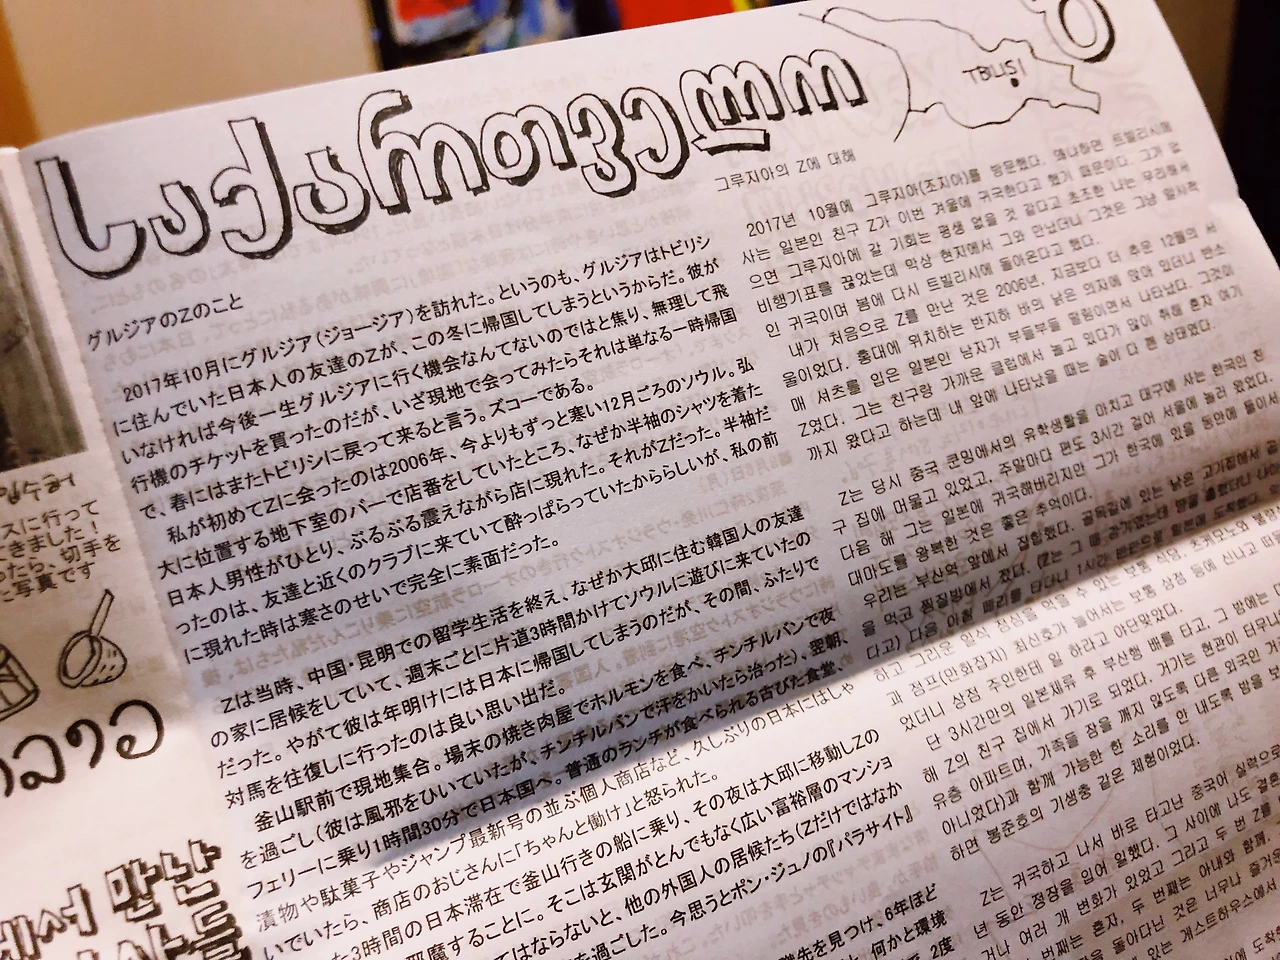 საქართველო
TBILISI
グルジアのZのこと
2017年10月にグルジア(ジョージア)を訪れた。というのも、グルジアはトビリシ
に住んでいた日本人の友達のZが、この冬に帰国してしまうというからだ。彼が
いなければ今後一生グルジアに行く機会なんてないのではと焦り、無理して飛
行機のチケットを買ったのだが、いざ現地で会ってみたらそれは単なる一時帰国
で、春にはまたトビリシに戻って来ると言う。ズコーである。
私が初めてZに会ったのは2006年、今よりもずっと寒い12月ごろのソウル。弘
大に位置する地下室のバーで店番をしていたところ、なぜか半袖のシャツを着た
日本人男性がひとり、ぶるぶる震えながら店に現れた。それがZだった。半袖だ
ったのは、友達と近くのクラブに来ていて酔っぱらっていたかららしいが、私の前
に現れた時は寒さのせいで完全に素面だった。
Zは当時、中国・昆明での留学生活を終え、なぜか大邱に住む韓国人の友達
の家に居候をしていて、週末ごとに片道3時間かけてソウルに遊びに来ていたの
だった。やがて彼は年明けには日本に帰国してしまうのだが、その間、ふたりで
対馬を往復しに行ったのは良い思い出だ。
釜山駅前で現地集合。場末の焼き肉屋でホルモンを食べ、チンチルバンで夜
を過ごし(彼は風邪をひいていたが、チンチルバンで汗をかいたら治った)、翌朝、
フェリーに乗り1時間30分で日本国へ。普通のランチが食べられる古びた食堂、
漬物や駄菓子やジャンプ最新号の並ぶ個人商店など、久しぶりの日本にはしゃ
いでいたら、商店のおじさんに「ちゃんと働け」と怒られた。
た3時間の日本滞在で釜山行きの船に乗り、その夜は大邱に移動しZの
邪魔することに。そこは玄関がとんでもなく広い富裕層のマンショ
てはならないと、他の外国人の居候たち(Zだけではなか
を過ごした。今思うとポン・ジュノの『パラサイト』
職先を見つけ、6年ほど
何かと環境
2度
그루지아의 Z에 대해
2017년 10월에 그루지아(조지아)를 방문했다. 왜냐하면 트빌리시에
사는 일본인 친구 Z가 이번 겨울에 귀국한다고 했기 때문이다. 그가 없
으면 그루지아에 갈 기회는 평생 없을 것 같다고 초조한 나는 무리해서
비행기표를 끊었는데 막상 현지에서 그와 만났더니 그것은 그냥 일시적
인 귀국이며 봄에 다시 트빌리시에 돌아온다고 했다.
내가 처음으로 Z를 만난 것은 2006년, 지금보다 더 추운 12월의 서
울이었다. 홍대에 위치하는 반지하 바의 낮은 의자에 앉아 있더니 반소
매 셔츠를 입은 일본인 남자가 부들부들 떨림이면서 나타났다. 그것이
Z였다. 그는 친구랑 가까운 클럽에서 놀고 있다가 많이 취해 혼자 여기
까지 왔다고 하는데 내 앞에 나타났을 때는 술이 다 깬 상태였다.
Z는 당시 중국 쿤밍에서의 유학생활을 마치고 대구에 사는 한국인 친
구 집에 머물고 있었고, 주말마다 편도 3시간 걸어 서울에 놀러 왔었다.
다음 해 그는 일본에 귀국해버리지만 그가 한국에 있을 동안에 둘이서
대마도를 왕복한 것은 좋은 추억이다.
우리는 부산역 앞에서 집합했다. 골목길에 있는 낡은 고기집에서
을 먹고 찜질방에서 잤다.
다고) 다음 아침 페리를 타더니 1시간 반만으로 일본에 도착했다.
하고 그리운 일식 정식을 먹을 수 있는 보통 식당,
과 점프(만화잡지) 최신호가 늘어서는 보통 상점 등에 신나고
있더니 상점 주인한테 일 하라고 야단맞았다.
단 3시간만의 일본체류 후 부산행 배를 타고, 그 밤에는
해 Z의 친구 집에서 가기로 되었다. 거기는 현관이 터무니
유층 아파트며, 가족들 잠을 깨지 않도록 다른 외국인
아니었다)과 함께 가능한 한 소리를 안 내도록 밤을
하면 봉준호의 기생충 같은 체험이었다.
Z는 귀국하고 나서 바로 타고난 중국어 실력으로
년 동안 정장을 입어 일했다. 그 사이에 나도 결혼
거나 여러 개 변화가 있었고 그리고 두 번 Z를
번째는 혼자, 두 번째는 아내와 함께.
돌아다닌 것은 너무나 즐거운
있는 게스트하우스에서
스に行って
できました!
たら、切手を
た写真です
에서 만난